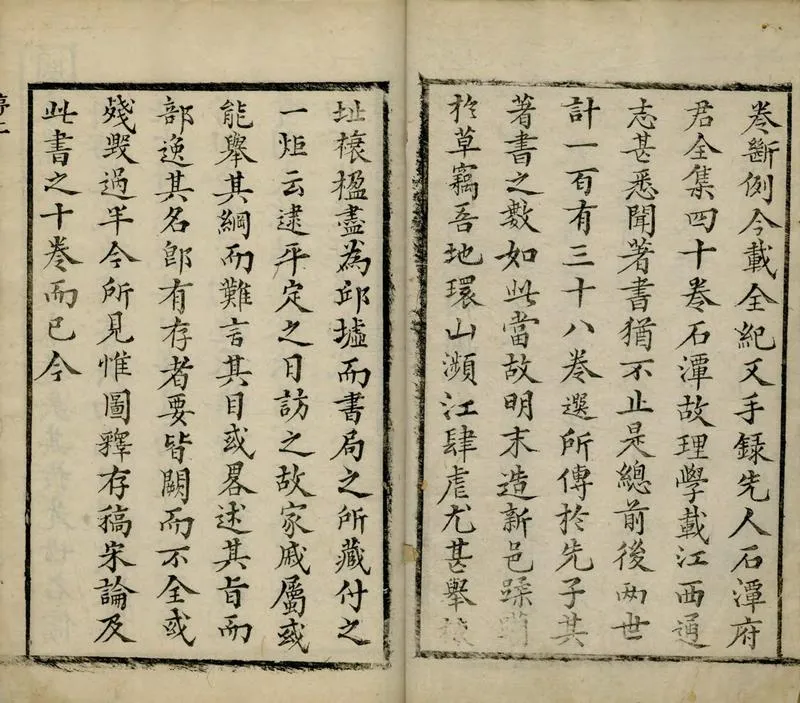 卷斷例今載全紀又手錄先人石潭府
君全集四十卷石潭故理學載江西通
志甚悉聞著書猶不止是總前後两世
計一百有三十八卷選所傳於先子其
著書之數如此當故明末造新邑蹂躙
於草竊吾地環山瀕江肆虐尤甚舉
址榱楹盡為邱墟而書局之所藏付之
一炬云逮平定之日訪之故家戚屬或
能舉其綱而難言其目或畧述其旨而
部逸其名卽有存者要皆闕而不全或
殘毀過半今所見惟圖釋存稿宋論及
此書之十卷而已今
序二